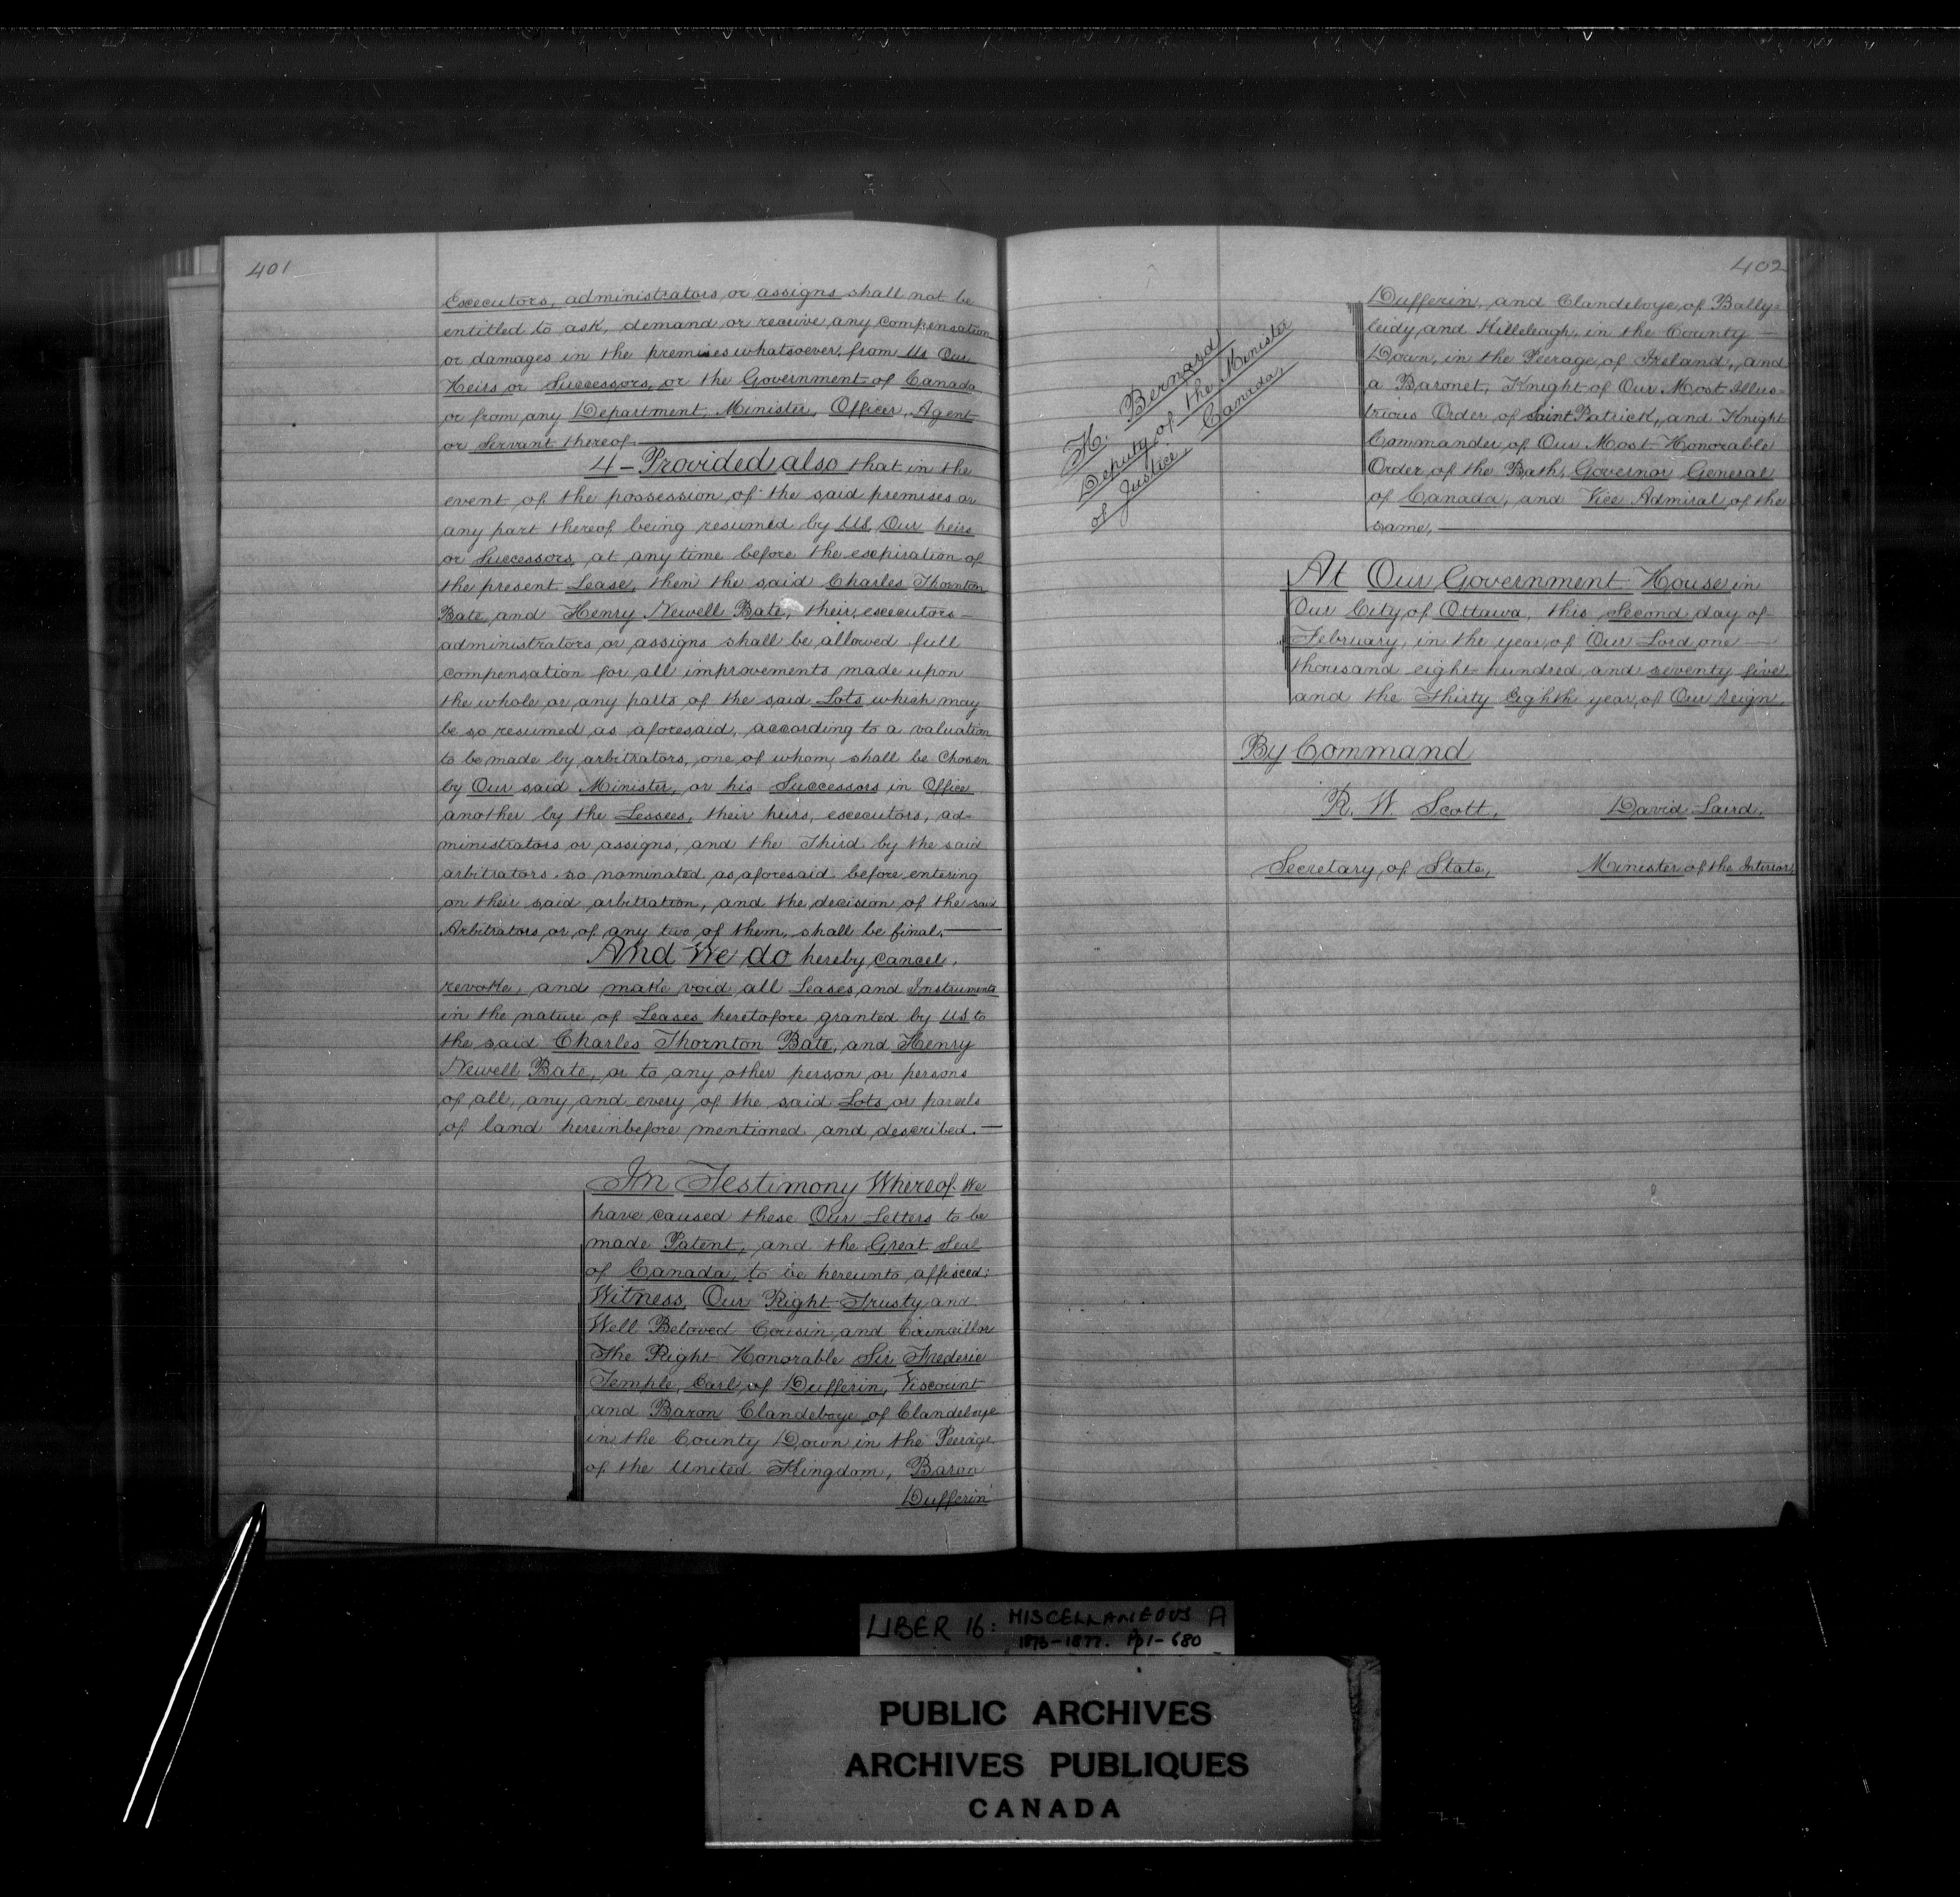 401
Executors, administrators, or assigns shall not be
entitled to ask, demand or receive any compensation
or damages in the premises whatsoever, from Us Our
Heirs or Successors, or the Government of Canada
or from any Department, Minister, Officer, Agent
or Servant thereof.
4 – Provided also that in the
event of the possession of the said premises or
any part thereof being resumed by US Our heirs
or Successors at any time before the expiration of
the present Lease, then the said Charles Thornton
Bate and Henry Newell Bate, their executors
administrators or assigns shall be allowed full
compensation for all improvements made upon
the whole or any parts of the said Lots which may
be so resumed as aforesaid, according to a valuation
to be made by arbitrators, one of whom, shall be chosen
by Our said Minister, or his Successors in Office
another by the Lessees, their heirs, executors, ad-
ministrators or assigns, and the Third by the said
arbitrators so nominated as aforesaid before entering
on their said arbitration, and the decision of the said
Arbitrators or of any two of them, shall be final.
And We do hereby cancel,
revoke, and make void all Leases and Instruments
in the nature of Leases heretofore granted by US to
the said Charles Thornton Bate, and Henry
Newell Bate, or to any other person or persons
of all, any and every of the said Lots or parcels
of land hereinbefore mentioned and described. —
In Testimony Whereof We
have caused these Our Letters to be
made Patent, and the Great Seal
of Canada, to be hereunto affixed:
Witness, Our Right Trusty and
Well Beloved Cousin and Councillor
The Right Honorable Sir Frederic
Temple, Earl of Dufferin, Viscount
and Baron Clandeboye of Clandeboye
in the County Down in the Peerage
of the United Kingdom, Baron
Dufferin
402
H. Bernard
Deputy of the Minister
of Justice, Canada,
Dufferin, and Clandeboye, of Bally-
leidy and Killeleagh, in the County
Down, in the Peerage of Ireland, and
a Baronet, Knight of Our Most Illus-
trious Order of Saint Patrick, and Knight
Commander of Our Most Honorable
Order of the Bath, Governor General
of Canada, and Vice Admiral of the
same,
At Our Government House in
Our City of Ottawa, this Second day of
February, in the year of Our Lord one
thousand eight hundred and seventy five
and the Thirty Eighth year of Our Reign.
By Command
R. W. Scott, David Laird,
Secretary of State, Minister of the Interior,
LIBER 16: MISCELLANEOUS A
1873–1877. Pp1–680
PUBLIC ARCHIVES
ARCHIVES PUBLIQUES
CANADA